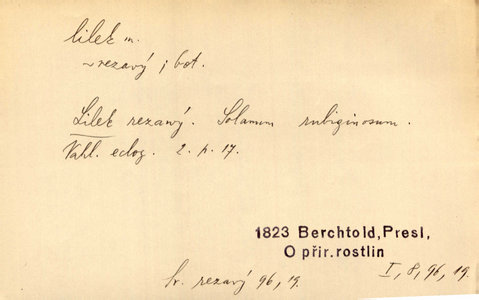 lilek m.
~ rezavý ; bot.
Lilek rezawý. Solanum rubiginosum.
Vahl. eclog. 2. p. 17.
1823 Berchtold, Presl,
O přir. rostlin
I, 8, 96, 19.
sv. rezavý 96, 19.